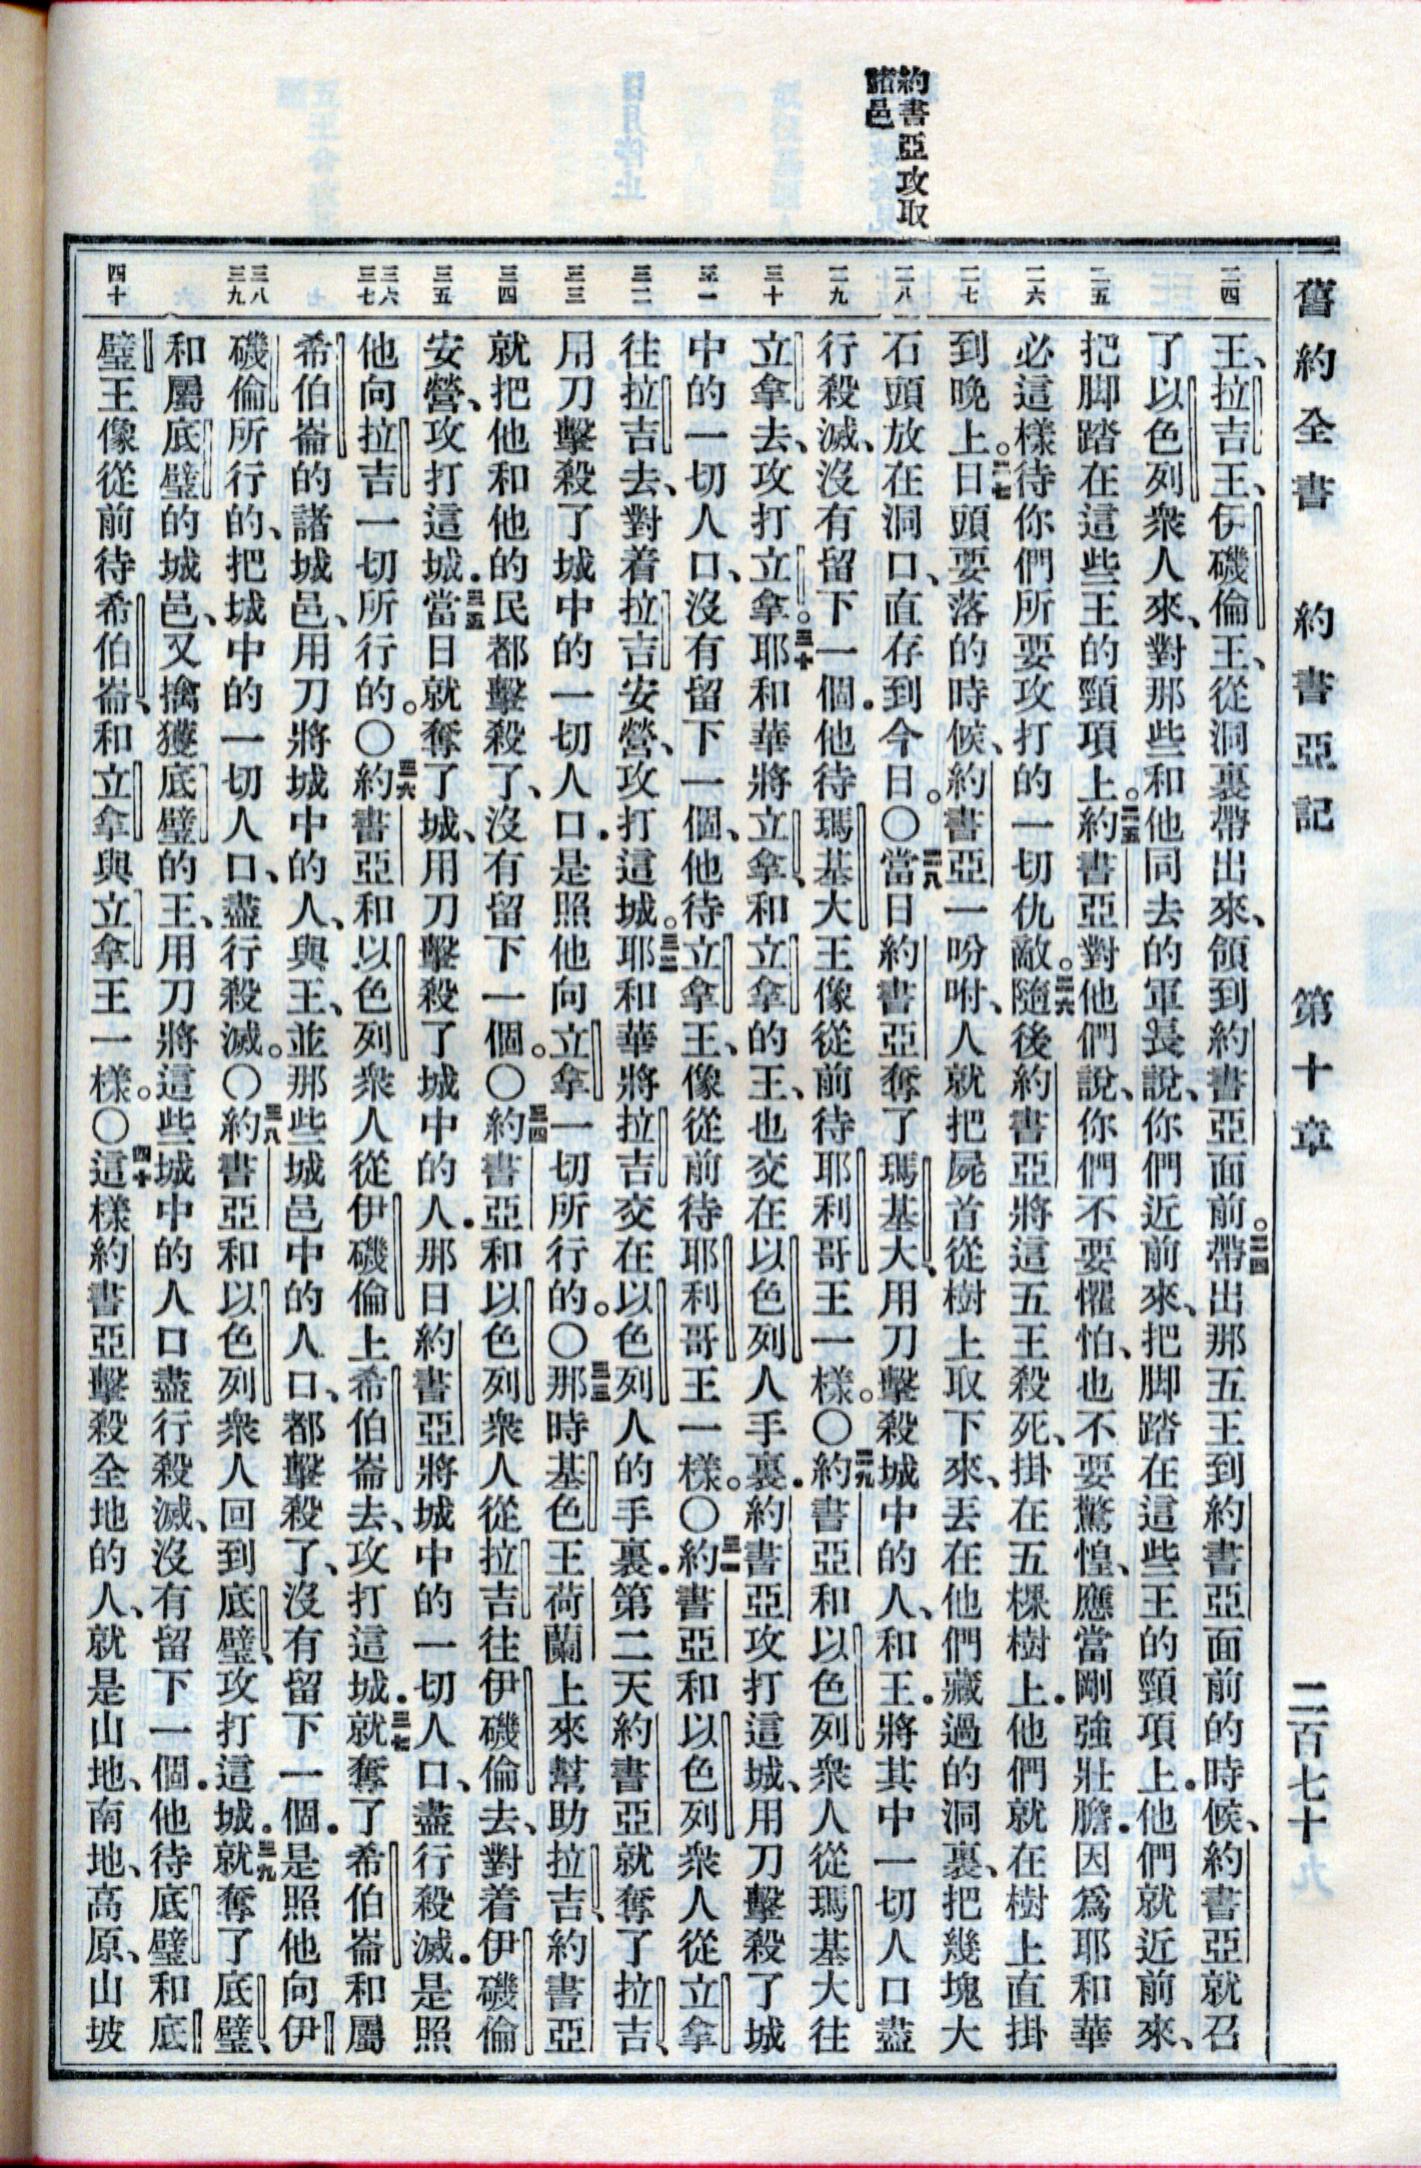 舊約全書　約書亞記　第十章　二百七十
約書亞攻取
諸邑
二四
二五
二六
二七
二八
二九
三十
三一
三二
三三
三四
三五
三六
三七
三八
三九
四十
王、拉吉王、伊磯倫王、從洞裏帶出來、領到約書亞面前。二四帶出那五王到約書亞面前的時候、約書亞就召
了以色列衆人來、對那些和他同去的軍長說、你們近前來、把脚踏在這些王的頸項上．他們就近前來、
把脚踏在這些王的頸項上。二五約書亞對他們說、你們不要懼怕、也不要驚惶、應當剛強壯膽．因爲耶和華
必這樣待你們所要攻打的一切仇敵。二六隨後約書亞將這五王殺死、掛在五棵樹上．他們就在樹上直掛
到晚上。二七日頭要落的時候、約書亞一吩咐、人就把屍首從樹上取下來、丟在他們藏過的洞裏、把幾塊大
石頭放在洞口、直存到今日。〇二八當日約書亞奪了瑪基大、用刀擊殺城中的人、和王．將其中一切人口盡
行殺滅、沒有留下一個．他待瑪基大王像從前待耶利哥王一樣。〇二九約書亞和以色列衆人從瑪基大往
立拿去、攻打立拿。三十耶和華將立拿、和立拿的王、也交在以色列人手裏．約書亞攻打這城、用刀擊殺了城
中的一切人口、沒有留下一個、他待立拿王、像從前待耶利哥王一樣。〇三一約書亞和以色列衆人從立拿
往拉吉去、對着拉吉安營、攻打這城。三二耶和華將拉吉交在以色列人的手裏．第二天約書亞就奪了拉吉、
用刀擊殺了城中的一切人口．是照他向立拿一切所行的。〇三三那時基色王荷蘭上來幫助拉吉、約書亞
就把他和他的民都擊殺了、沒有留下一個。〇三四約書亞和以色列衆人從拉吉往伊磯倫去、對着伊磯倫
安營、攻打這城．三五當日就奪了城、用刀擊殺了城中的人．那日約書亞將城中的一切人口、盡行殺滅．是照
他向拉吉一切所行的。〇三六約書亞和以色列衆人從伊磯倫上希伯崙去、攻打這城．三七就奪了希伯崙和屬
希伯崙的諸城邑、用刀將城中的人、與王、並那些城邑中的人口、都擊殺了、沒有留下一個．是照他向伊
磯倫所行的、把城中的一切人口、盡行殺滅。〇三八約書亞和以色列衆人回到底璧、攻打這城．三九就奪了底璧、
和屬底璧的城邑、又擒獲底璧的王、用刀將這些城中的人口盡行殺滅、沒有留下一個．他待底璧和底
璧王像從前待希伯崙、和立拿與立拿王一樣。〇四十這樣約書亞擊殺全地的人、就是山地、南地、高原、山坡